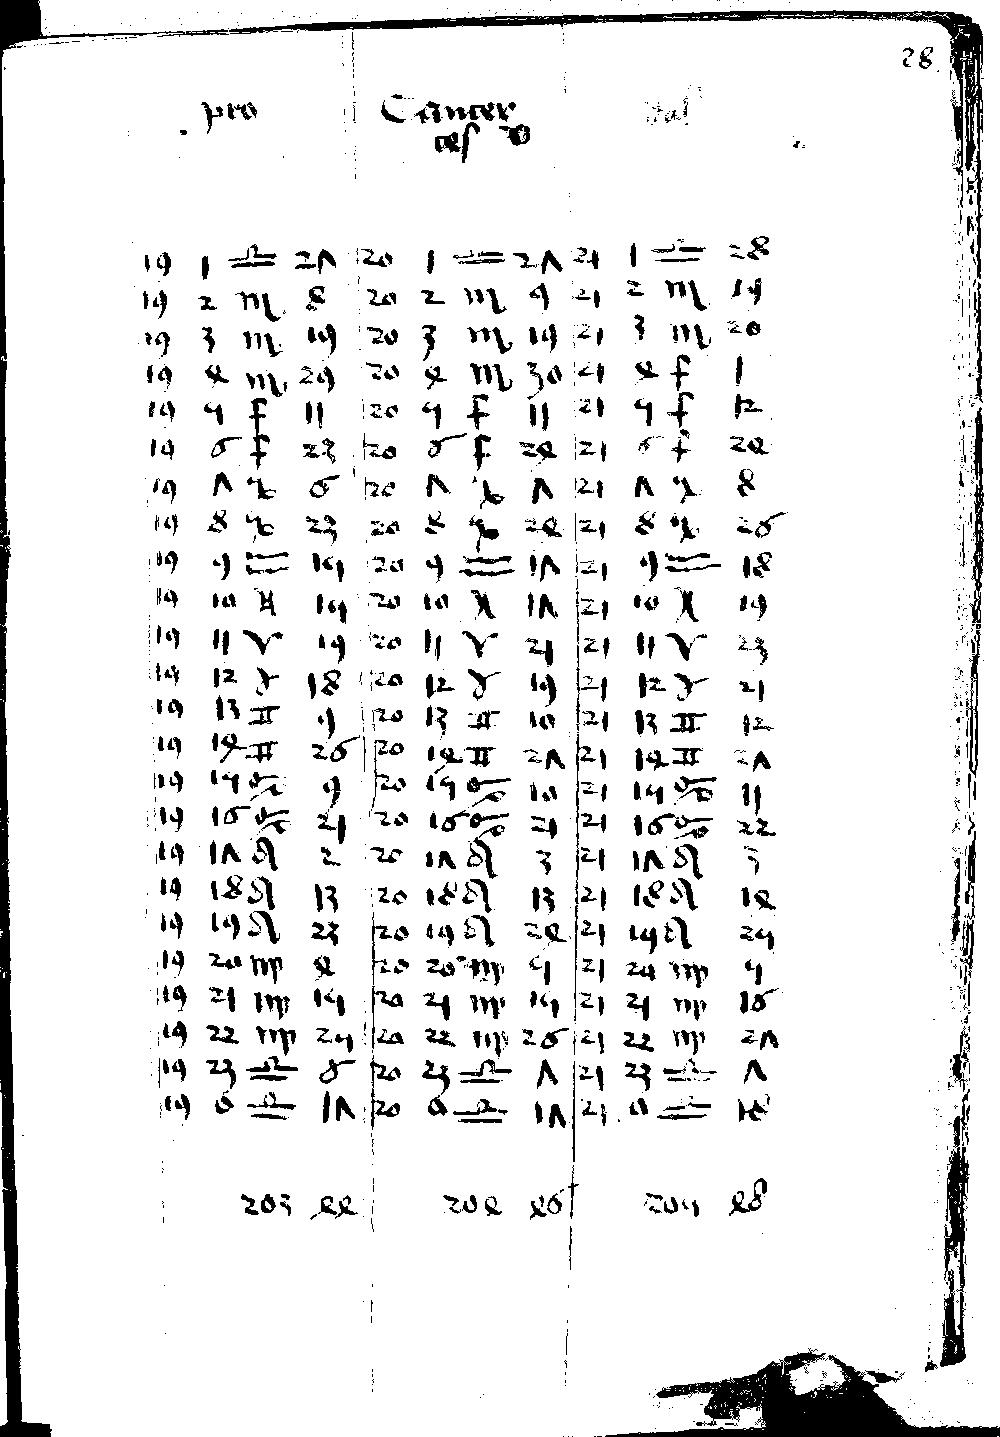 28
pro Cancer
19 1 ♎ 27 20 1 ♎ 27 21 1 ♎ 28
19 2 ♏ 8 20 2 ♏ 9 21 2 ♏ 19
19 3 ♏ 19 20 3 ♏ 19 21 3 ♏ 20
19 4 ♏ 29 20 4 ♏ 30 21 4 ♐ 1
19 5 ♐ 11 20 5 ♐ 11 21 5 ♐ 12
19 6 ♐ 23 20 6 ♐ 24 21 6 ♐ 24
19 7 ♑ 6 20 7 ♑ 7 21 7 ♑ 8
19 8 ♑ 23 20 8 ♑ 24 21 8 ♑ 26
19 9 ♒ 15 20 9 ♒ 17 21 9 ♒ 18
19 10 ♓ 15 20 10 ♓ 17 21 10 ♓ 19
19 11 ♈ 19 20 11 ♈ 21 21 11 ♈ 23
19 12 ♉ 18 20 12 ♉ 19 21 12 ♉ 21
19 13 ♊ 9 20 13 ♊ 10 21 13 ♊ 12
19 14 ♊ 26 20 14 ♊ 27 21 14 ♊ 27
19 15 ♋ 9 20 15 ♋ 10 21 15 ♋ 11
19 16 ♋ 21 20 16 ♋ 21 21 16 ♋ 22
19 17 ♌ 2 20 17 ♌ 3 21 17 ♌ 3
19 18 ♌ 13 20 18 ♌ 13 21 18 ♌ 14
19 19 ♌ 23 20 19 ♌ 24 21 19 ♌ 25
19 20 ♍ 4 20 20 ♍ 5 21 20 ♍ 5
19 21 ♍ 15 20 21 ♍ 15 21 21 ♍ 16
19 22 ♍ 25 20 22 ♍ 26 21 22 ♍ 27
19 23 ♎ 6 20 23 ♎ 7 21 23 ♎ 7
19 0 ♎ 17 20 0 ♎ 17 21 0 ♎ 18
203 44 204 46 205 48